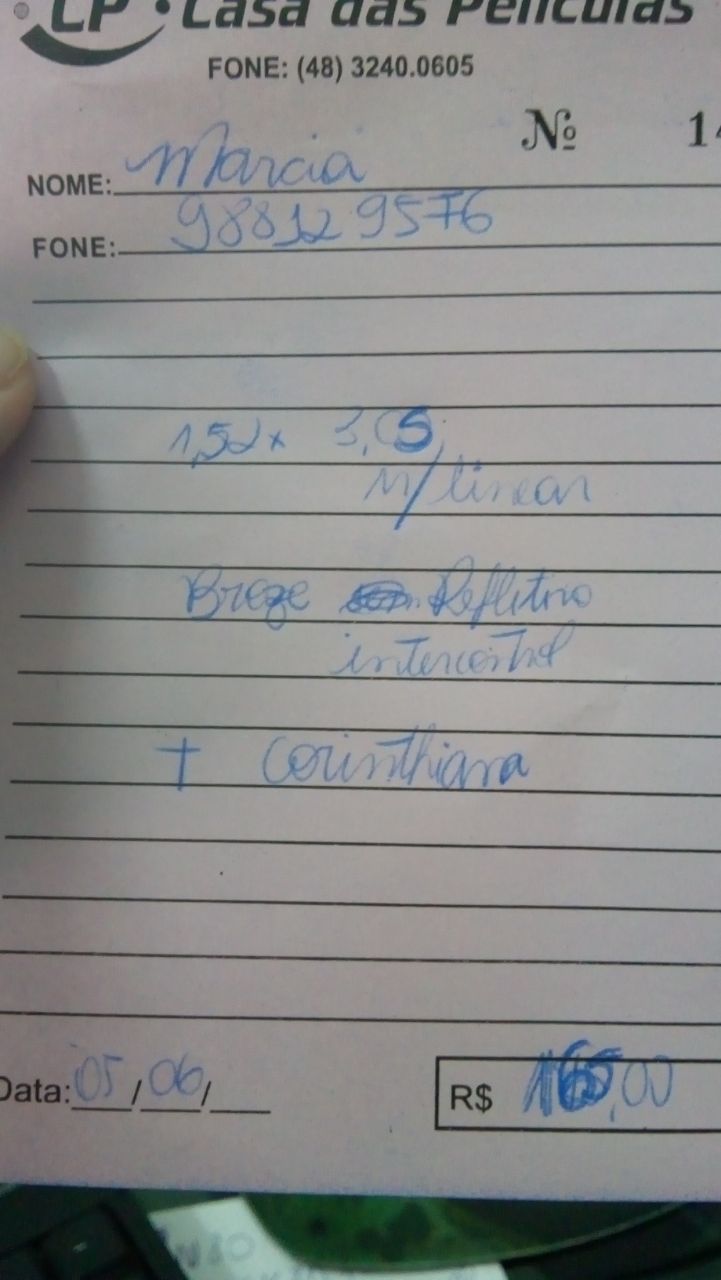 CP Casa das Películas
FONE: (48) 3240.0605
Nº 14
NOME: Marcia
FONE: 988129576
1,52 x 3,05
m/linear
Refletivo
+ Corinthiana
Data: 05/06/
R$ 165,00